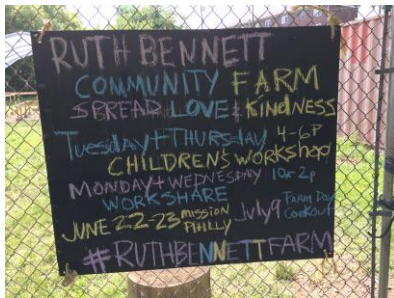 RUTH BENNETT
COMMUNITY FARM
SPREAD LOVE & KINDNESS
Tuesday + THURSDAY 4-6P
CHILDREN'S WORKSHOP
MONDAY + WEDNESDAY 10a-2p
WORKSHARE
JUNE 22-23 MISSION PHILLY
July 9 Farm Day Cookout
#RUTHBENNETTFARM